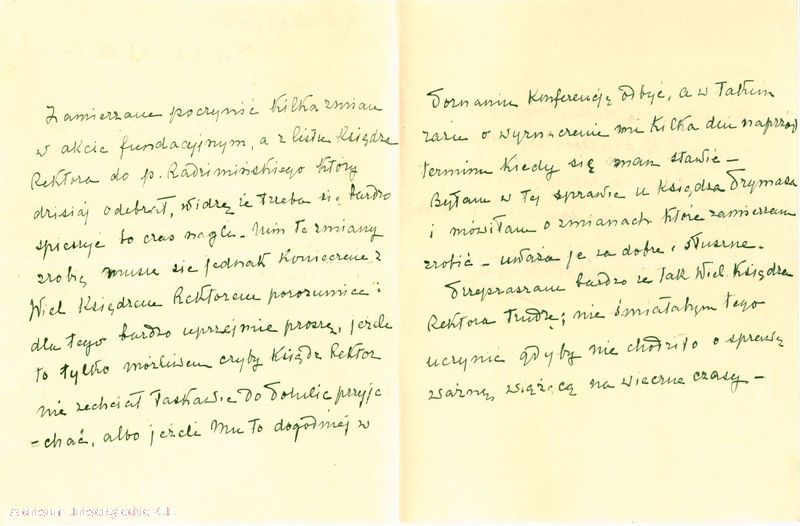 Zamierzam poczynić kilka zmian
w akcie fundacyjnym, a z listu Księdza
Rektora do p. Radzimińskiego który
dzisiaj odebrał, widzę że trzeba się bardzo
spieszyć bo czas nagla. Nim te zmiany
zrobię muszę się jednak koniecznie z
Wiel Księdzem Rektorem porozumieć i
dla tego bardzo uprzejmie proszę, jeżeli
to tylko możliwem czyby Ksiądz Rektor
nie zechciał łaskawie do Potulic przyje
-chać, albo jeżeli Mu to dogodniej w
Poznaniu Konferencję odbyć, a w takim
razie o wyznaczenie mi kilka dni naprzód
terminu kiedy się mam stawić –
Byłam w tej sprawie u Księdza Prymasa
i mówiłam o zmianach które zamierzam
zrobić – uważa je za dobre i słuszne.
Przepraszam bardzo że tak Wiel Księdza
Rektora trudzę; nie śmiałabym tego
uczynić gdyby nie chodziło o sprawę
ważną, wiążącą na wieczne czasy –